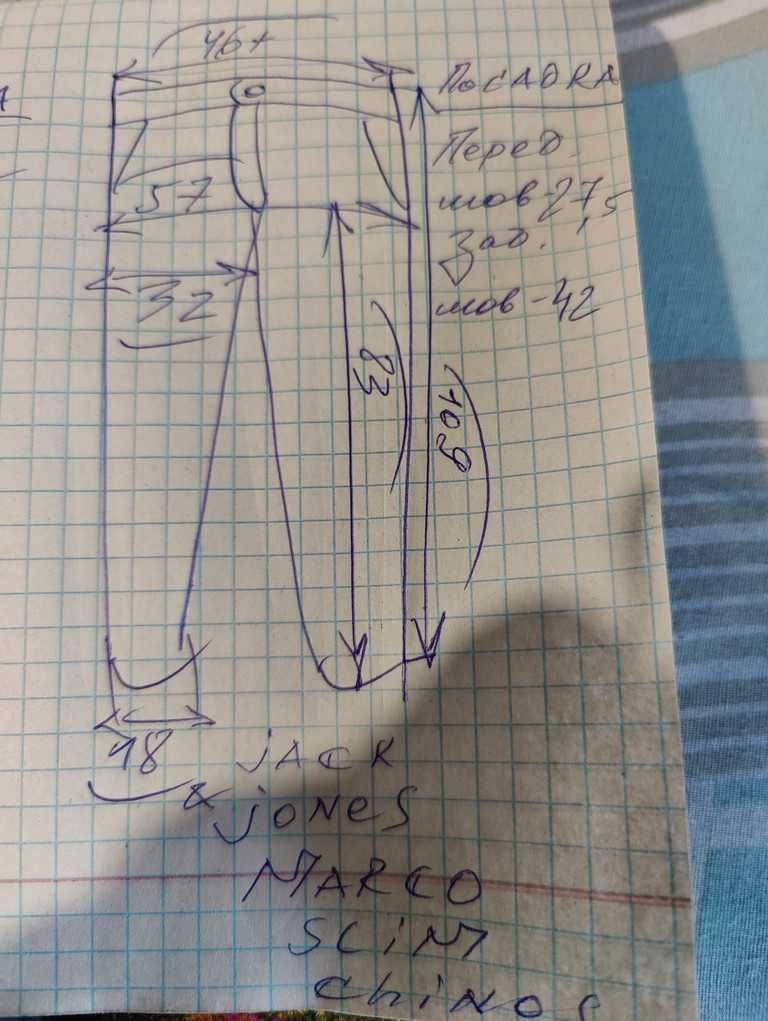 46+
ПОСАДКА
Перед.
шов-27,5
57
Зад.
32
шов-42
83
109
18
JACK
& JONES
MARCO
SLIM
CHINOS